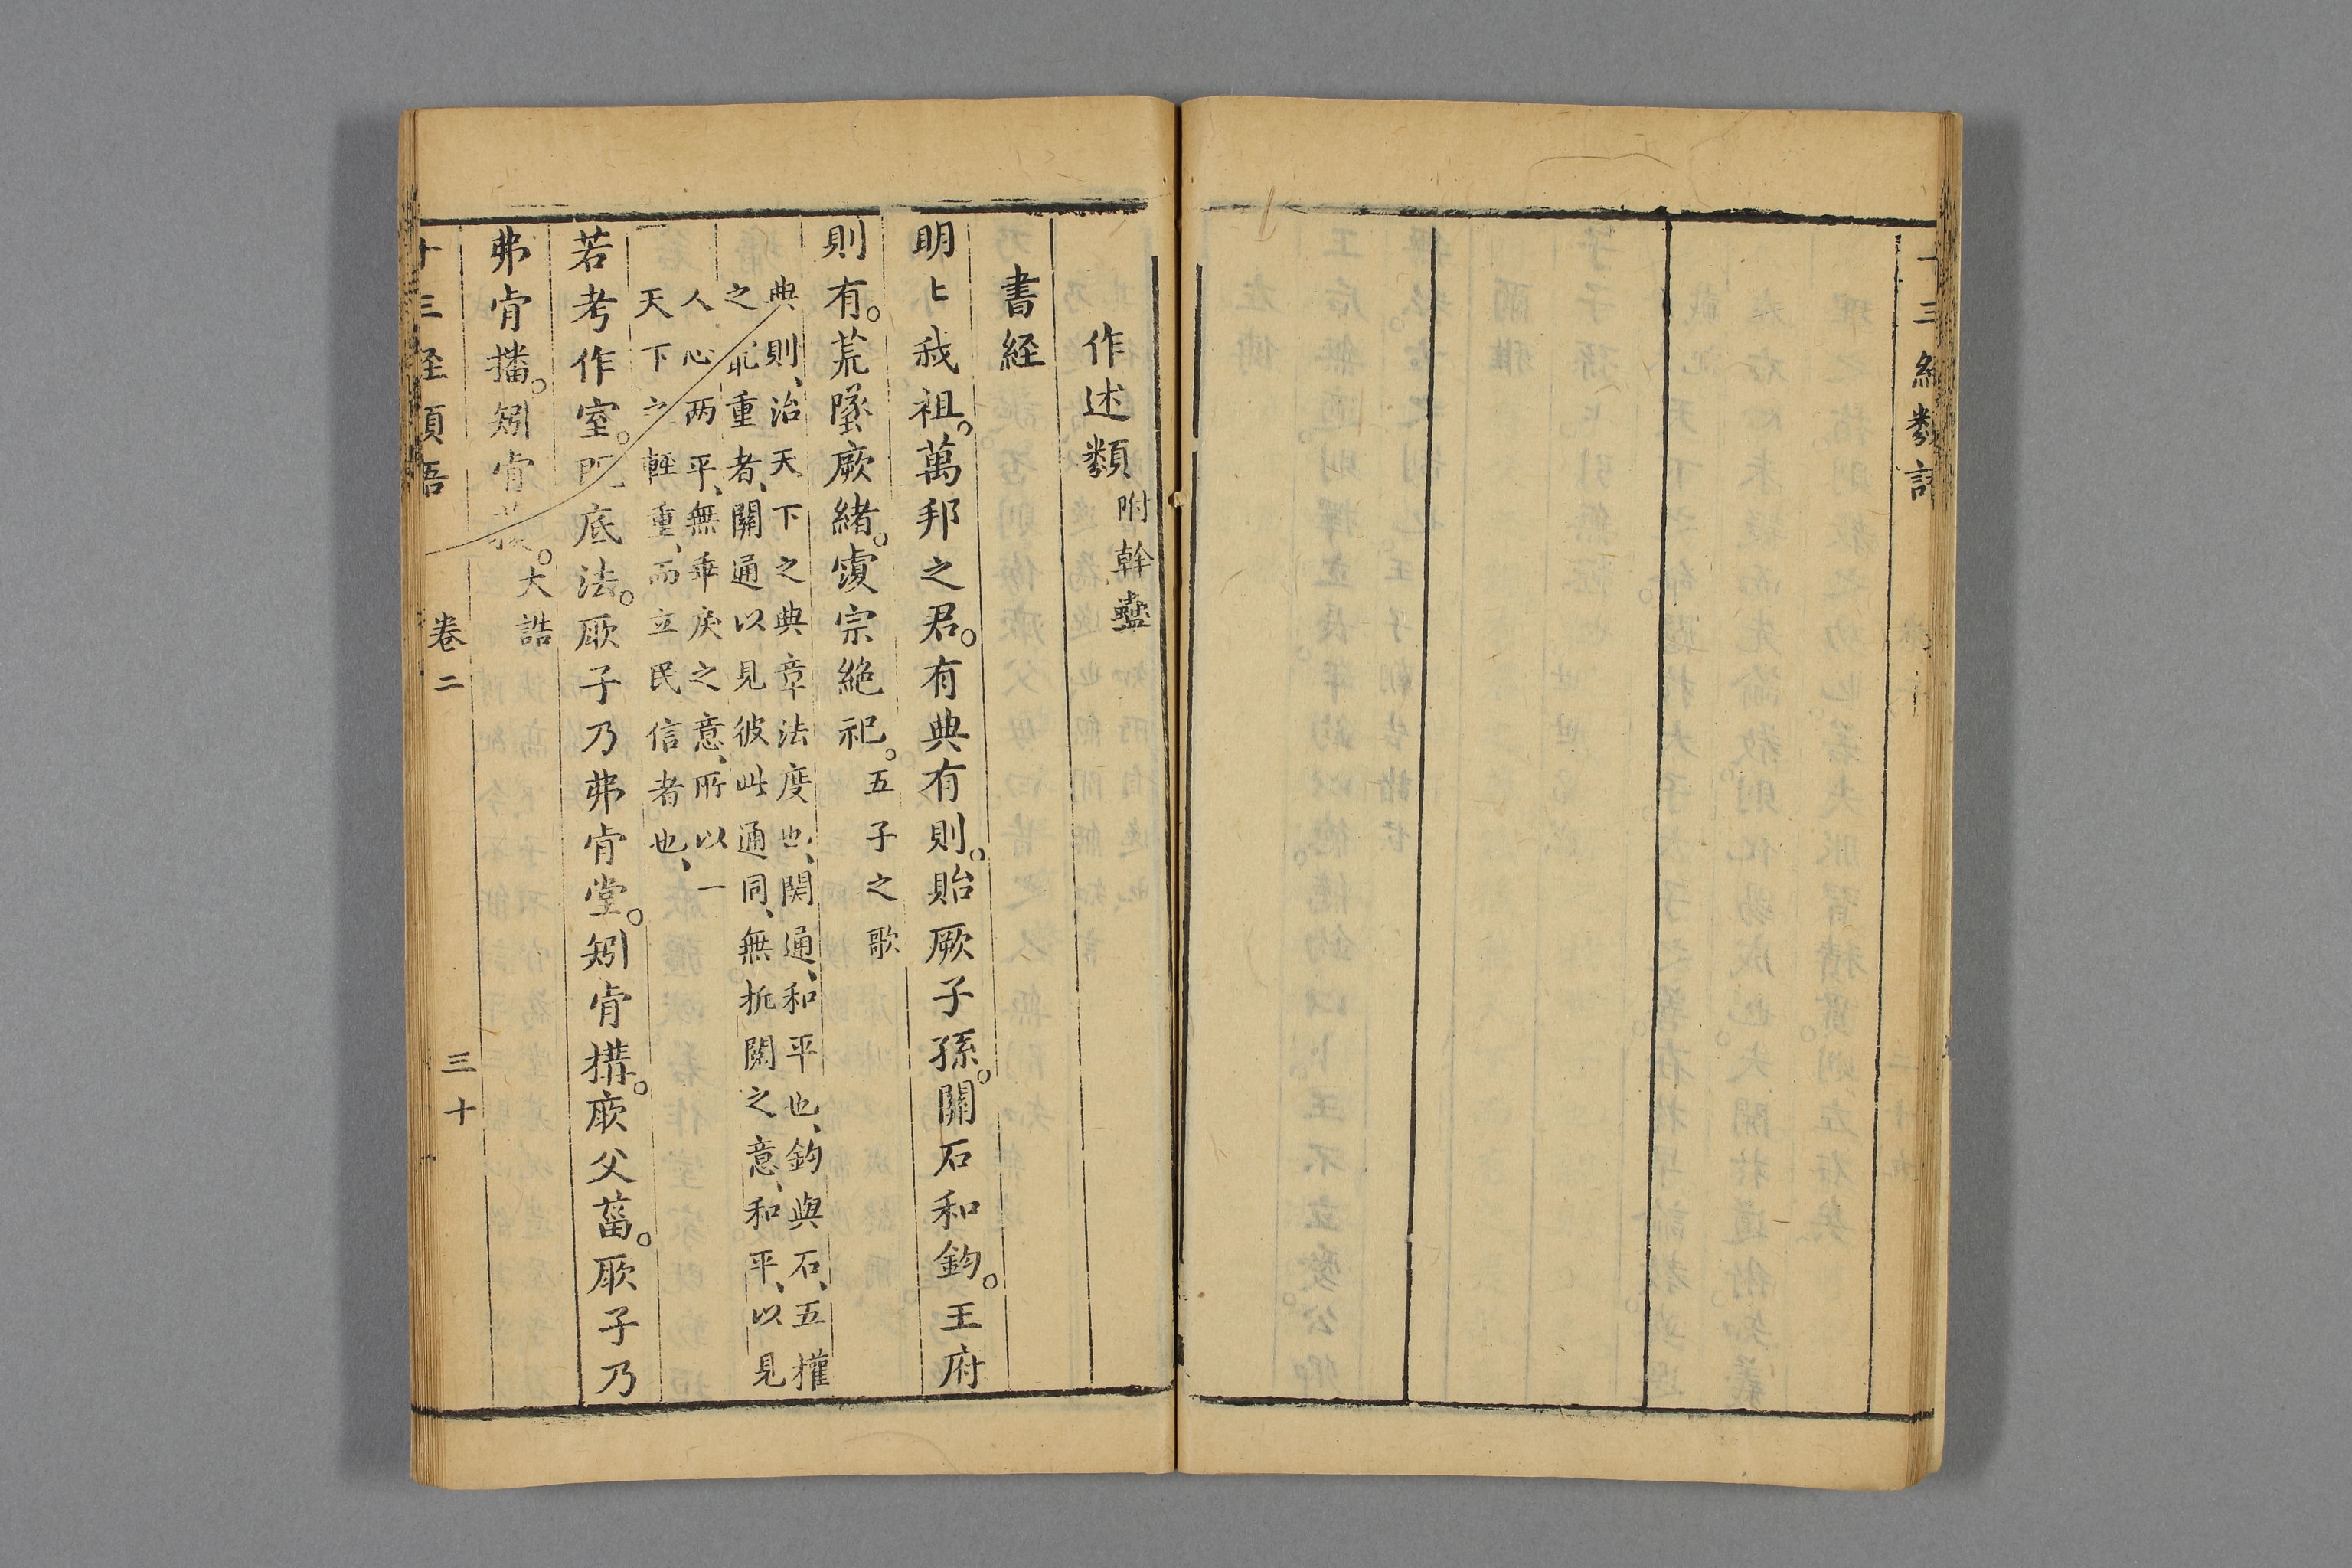 十三經類語
作述類附幹蠱
書経
明〻我祖。萬邦之君。有典有則。貽厥子孫。關石和鈞。王府
則有。荒墜厥緒。覆宗絶祀。五子之歌
典則、治天下之典章法度也、関通、和平也、鈞與石、五權
之最重者、關通以見彼此通同、無扼関之意、和平、以見
人心两平、無乖戾之意、所以一
天下之輕重、而立民信者也、
若考作室。既底法。厥子乃弗肯堂。矧肯構。厥父菑。厥子乃
弗肯播。矧肯穫。大誥
十三経類語 卷二 三十